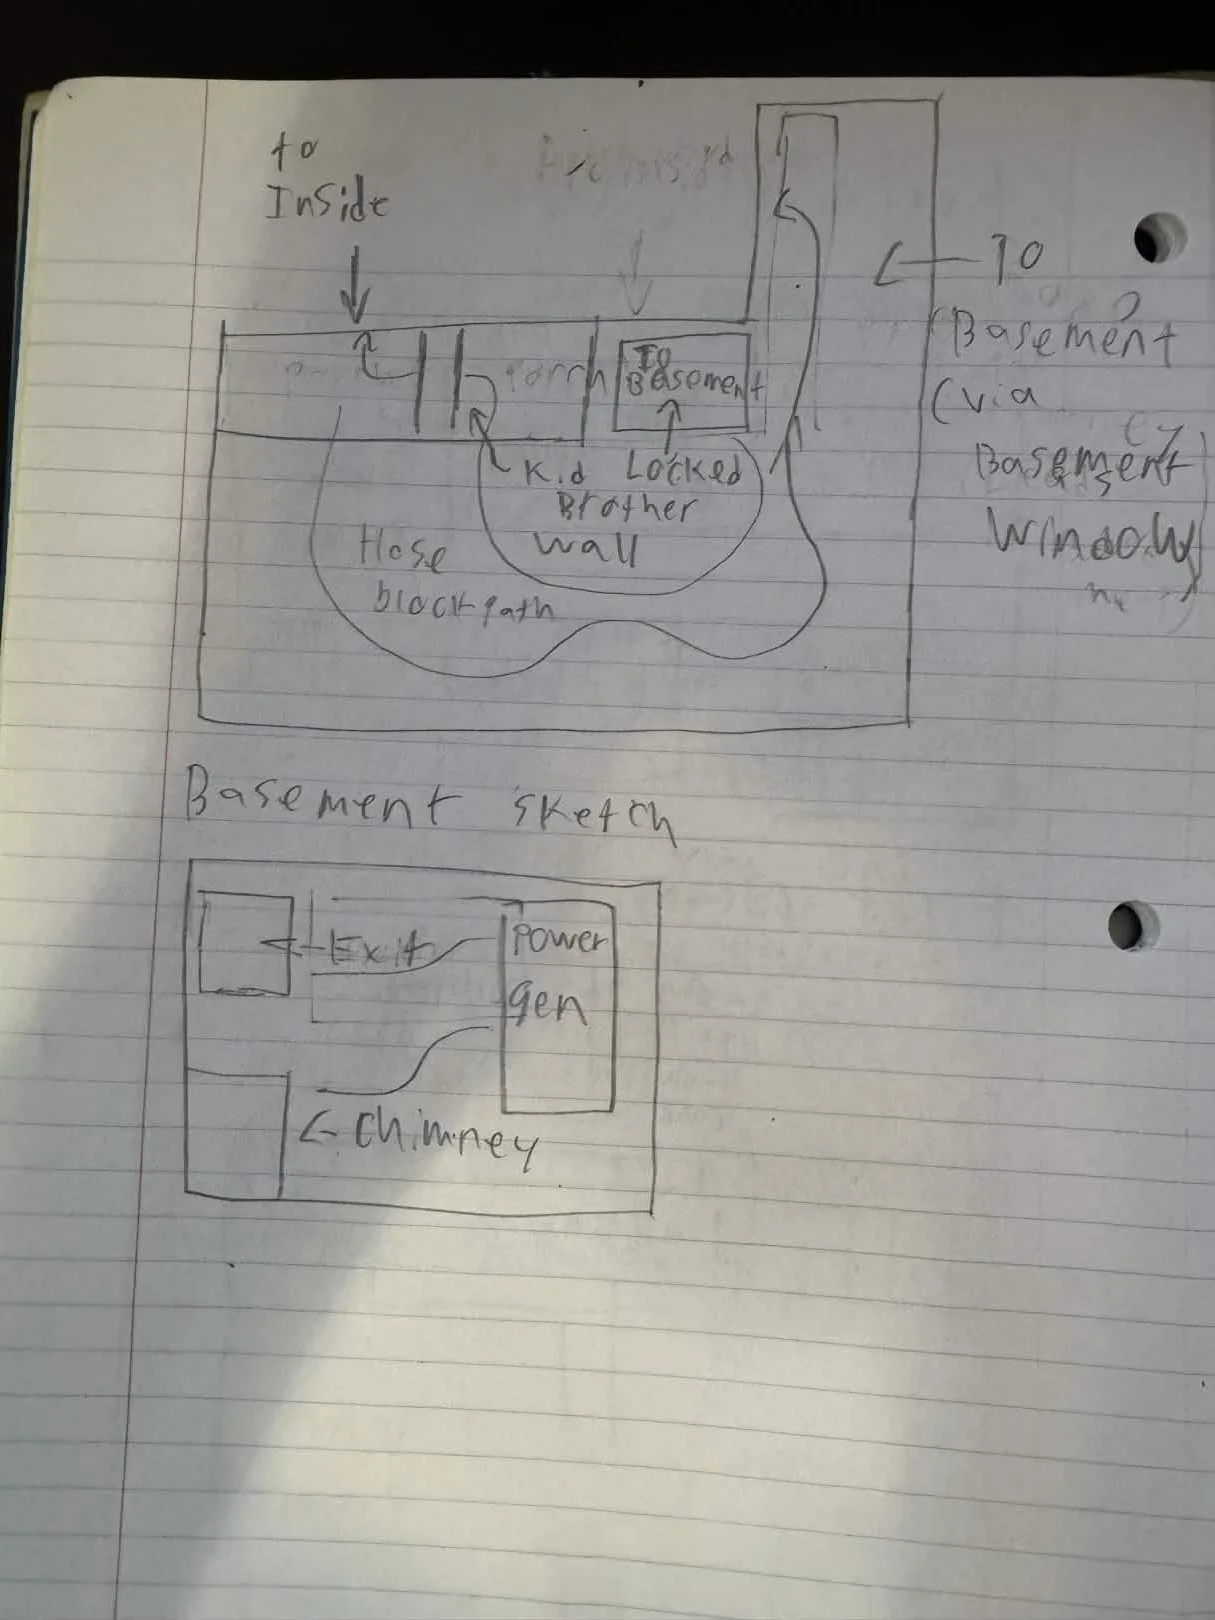 to
Inside
To
(Basement
(via
Basement
Window)
Porch
To
Basement
Kid Locked
Brother
Wall
Hose
block path
Basement sketch
Exit
Power
gen
Chimney